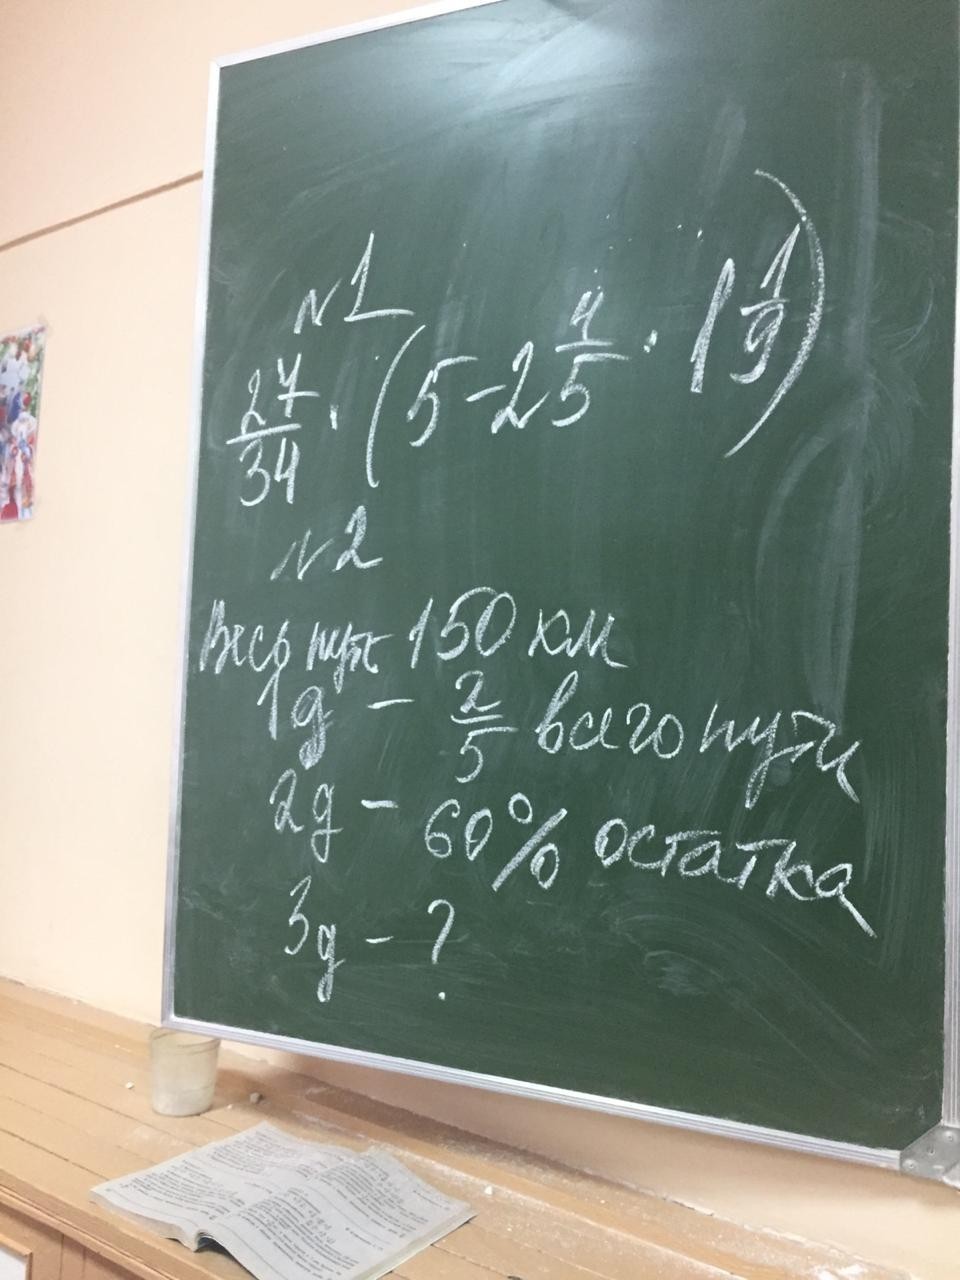 №1
27/34 · (5 - 2 4/5 · 1 1/9)
№2
Весь путь 150 км
1д - 2/5 всего пути
2д - 60% остатка
3д - ?